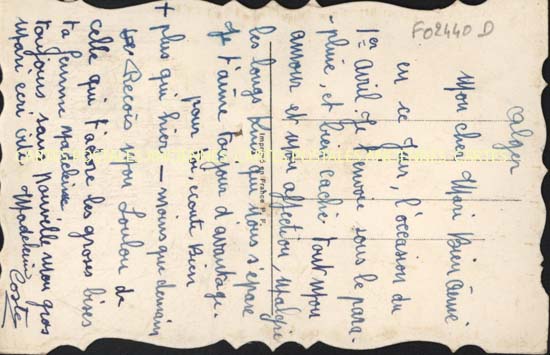 Alger
Mon cher Mari Bien Aimé
en ce jour, l'occasion du
1er avril Je t'envoie sous le para-
pluie, et bien caché tout mon
amour et Mon affection, Malgré
les longs Km qui Nous s'épare
Je t'aime toujour d'avantage.
pour toi écoute Bien
+ plus qui hier — moins que demain
Recois mon Loulou de
celle qui t'adore les gross bises
ta femme Madeleine,
toujours sans nouvelle Mon gros
Mari ecri vite Madeleine
Coste
Imprimé en France
F02440 D